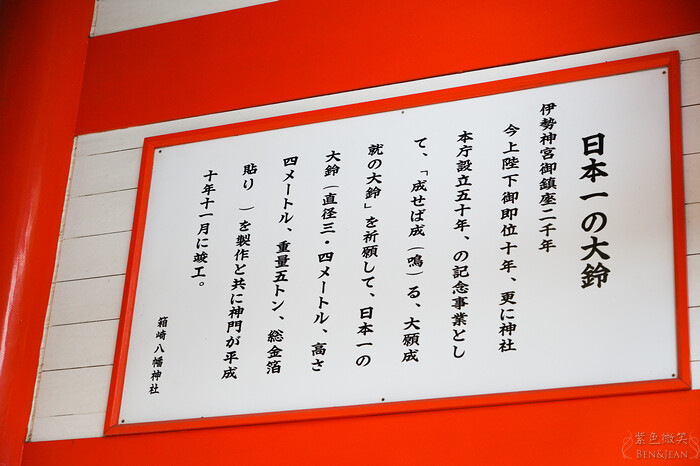 日本一の大鈴
伊勢神宮御鎮座二千年
今上陛下御即位十年、更に神社
本庁設立五十年、の記念事業とし
て、「成せば成(鳴)る、大願成
就の大鈴」を祈願して、日本一の
大鈴(直径三・四メートル、高さ
四メートル、重量五トン、総金箔
貼り　)を製作と共に神門が平成
十年十一月に竣工。
箱崎八幡神社
紫色微笑
BEN&JEAN